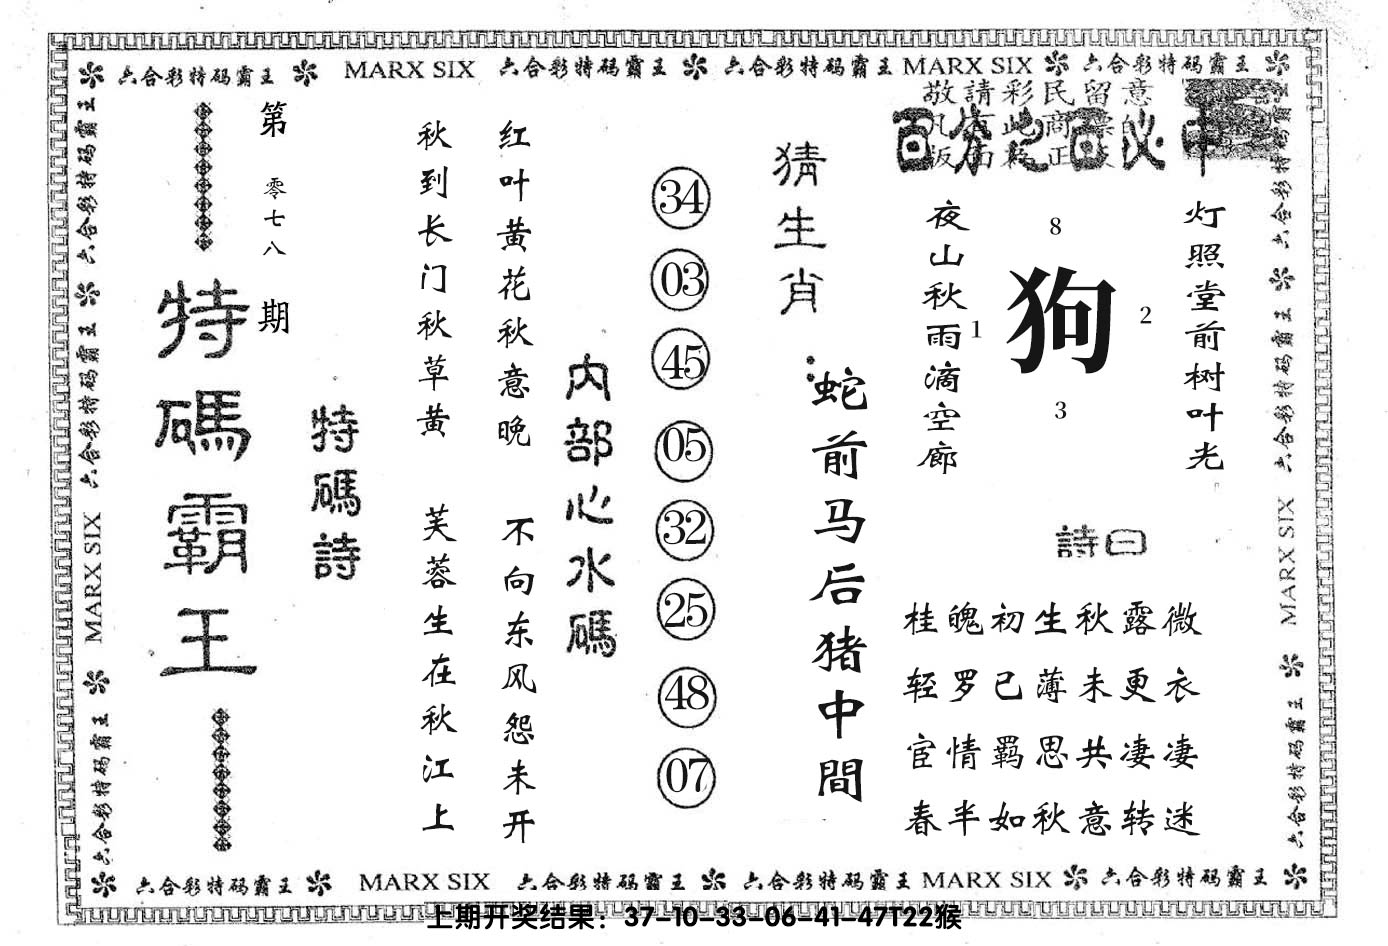 六合彩特码霸王 MARX SIX 六合彩特码霸王 六合彩特码霸王 MARX SIX 六合彩特码霸王
六合彩特码霸王 六合彩特码霸王 MARX SIX 六合彩特码霸王
第零七八期
特碼霸王
特碼詩
秋到长门秋草黄 芙蓉生在秋江上
红叶黄花秋意晚 不向东风怨未开
内部心水碼
34
03
45
05
32
25
48
07
猜生肖:
蛇前马后猪中間
敬請彩民留意
夜山秋雨滴空廊
8
1
狗
2
3
灯照堂前树叶光
詩曰
桂魄初生秋露微
轻罗已薄未更衣
宦情羁思共凄凄
春半如秋意转迷
六合彩特码霸王 六合彩特码霸王 MARX SIX 六合彩特码霸王
六合彩特码霸王 MARX SIX 六合彩特码霸王 六合彩特码霸王 MARX SIX 六合彩特码霸王
上期开奖结果：37-10-33-06-41-47T22猴